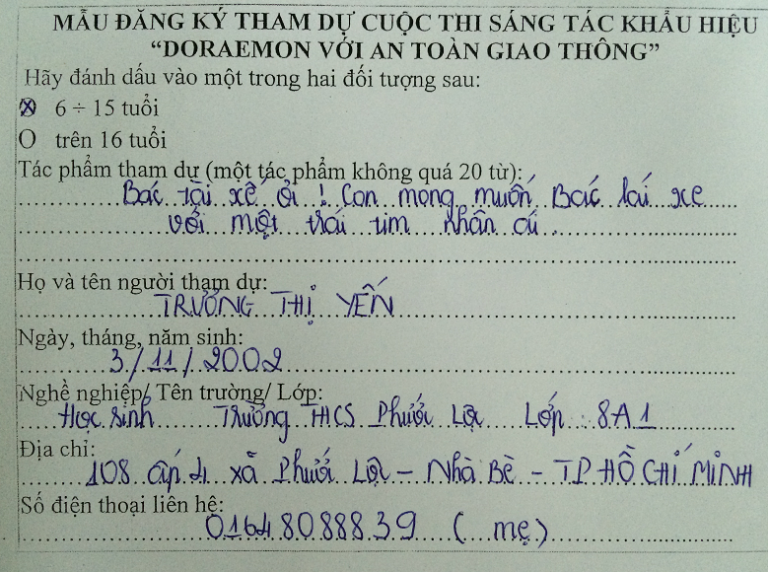 MẪU ĐĂNG KÝ THAM DỰ CUỘC THI SÁNG TÁC KHẨU HIỆU
“DORAEMON VỚI AN TOÀN GIAO THÔNG”
Hãy đánh dấu vào một trong hai đối tượng sau:
6 ÷ 15 tuổi
O trên 16 tuổi
Tác phẩm tham dự (một tác phẩm không quá 20 từ):
Bác tài xế ơi ! Con mong muốn Bác lái xe
với một trái tim nhân ái.
Họ và tên người tham dự:
TRƯƠNG THỊ YẾN
Ngày, tháng, năm sinh:
3/11/2002
Nghề nghiệp/ Tên trường/ Lớp:
Học sinh Trường THCS Phước Lộc Lớp : 8A1
Địa chỉ:
108 ấp 4 xã Phước Lộc - Nhà Bè - TP HỒ CHÍ MINH
Số điện thoại liên hệ:
01648088839 ( mẹ )